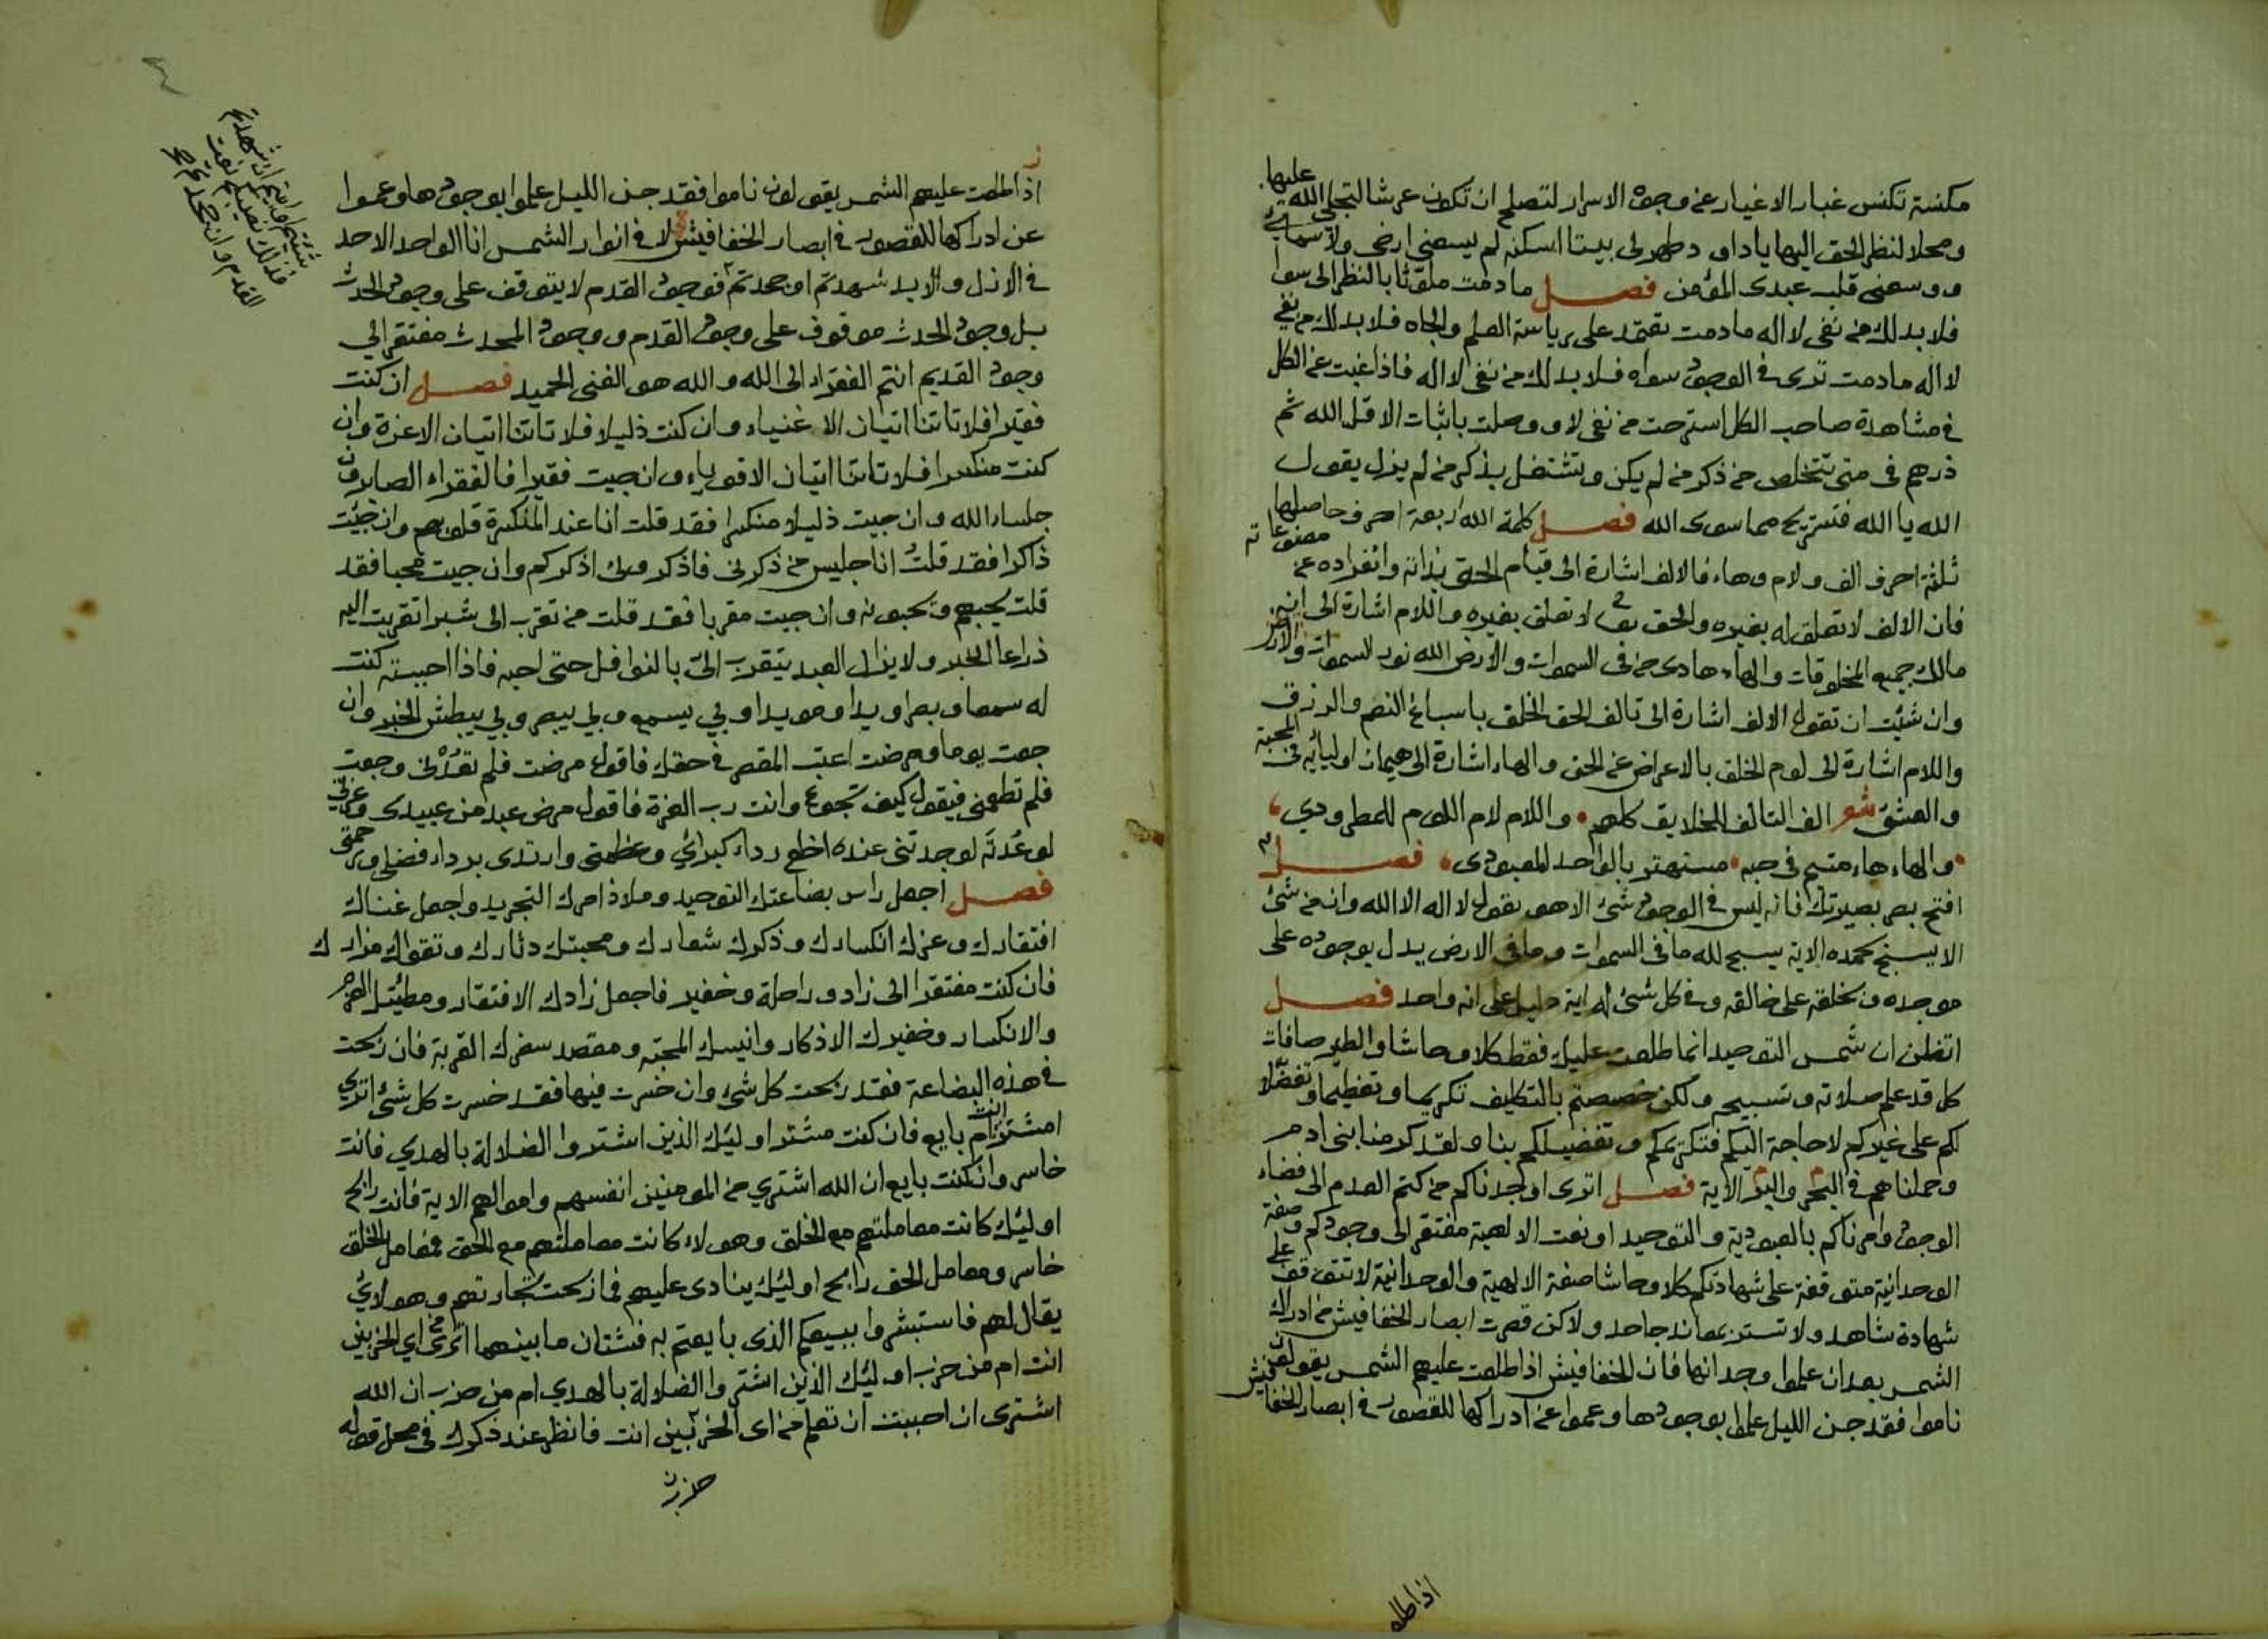 مكنسة تكنس غبار الاغيار عن وجوه الاسرار لتصلح ان تكون عرشا لتجلي الله عليها
ومحلا لنظر الحق اليها يا داود طهر لي بيتا اسكنه لم يسعني ارضي ولا سمائي
ووسعني قلب عبدي المؤمن فصل ما دمت ملوثا بالنظر الى سوا
فلا بد لك من نفي لا اله ما دمت تعتمد على رياسة العلم والجاه فلا بد لك من نفي
لا اله ما دمت ترى في الوجود سواه فلا بد لك من نفي لا اله فاذا غبت عن الكل
في مشاهدة صاحب الكل استرحت من نفي لا ووصلت باثبات الا قل الله ثم
ذرهم في متى تتخلص من ذكر من لم يكن وتشتغل بذكر من لم يزل يقول
الله يا الله فتستريح مما سوى الله فصل كلمة الله اربعة احرف حاصلها
ثلثة احرف الف ولام وهاء فالالف اشارة الى قيام الحق بذاته وانفراده عن مصنوعاته
فان الالف لا تعلق له بغيره والحق تعالى لا تعلق بغيره واللام اشارة الى انه
مالك جميع المخلوقات والهاء هادي من في السموات والارض الله نور السموات والارض
وان شئت ان تقول الالف اشارة الى تالف الحق الخلق باسباغ النعم والرزق
واللام اشارة الى لوم الخلق بالاعراض عن الحق والهاء اشارة الى هيمان اوليائه في المحبة
والعشق شعر الف التالف للخلايق كلهم واللام لام اللوم للمطرودي
والهاء هاء متيم في حبه مستهتر بالواحد المعبودي فصل
افتح بصر بصيرتك فانه ليس في الوجود شئ الا هو يقول لا اله الا الله وان من شئ
الا يسبح بحمده الاية يسبح لله ما في السموات وما في الارض يدل بوجوده على
موجده وبخلقه على خالقه وفي كل شئ له اية دليل على انه واحد فصل
اتظن ان شمس التوحيد انما طلعت عليك فقط كلا وحاشا والطير صافات
كل قد علم صلاته وتسبيحه ولكن خصصتم بالتكليف تكريما وتعظيما وتفضلا
لكم على غيركم لا حاجة اليكم فتكريمكم وتفضيلكم بنا ولقد كرمنا بني ادم
وحملناهم في البحر والبر الاية فصل اترى اوجدناكم من كتم العدم الى فضاء
الوجود وامرناكم بالعبودية والتوحيد او نعت الالهية مفتقر الى وجودكم وصفة
الوحدانية متوقفة على شهادتكم كلا وحاشا صفة الالهية والوحدانية لا تتوقف على
شهادة شاهد ولا تستتر بعاند جاحد ولاكن قصرت ابصار الخفافيش من ادراك
الشمس بعد ان علموا وجدانها فان الخفافيش اذا طلعت عليهم الشمس يقولون
ناموا فقد جن الليل علموا بوجودها وعموا عن ادراكها للقصور في ابصار الخفافيش
اذا طلعت
اذا طلعت عليهم الشمس يقولون ناموا فقد جن الليل علموا بوجودها وعموا
عن ادراكها للقصور في ابصار الخفافيش لا في انوار الشمس انا الواحد الاحد
في الازل والابد شهدتم او جحدتم فوجود القدم لا يتوقف على وجود الحدث
بل وجود الحدث موقوف على وجود القدم ووجود المحدث مفتقر الى
وجود القديم انتم الفقراء الى الله والله هو الغني الحميد فصل ان كنت
فقيرا فلا تاتنا اتيان الاغنياء وان كنت ذليلا فلا تاتنا اتيان الاعزة وان
كنت منكسرا فلا تاتنا اتيان الاقوياء وان جيت فقيرا فالفقراء الصابرون
جلساء الله وان جيت ذليلا منكسرا فقد قلت انا عند المنكسرة قلوبهم وان جئت
ذاكرا فقد قلت انا جليس من ذكرني فاذكروني اذكركم وان جيت محبا فقد
قلت يحبهم ويحبونه وان جيت مقربا فقد قلت من تقرب الى شبرا تقربت اليه
ذراعا الخبر ولا يزال العبد يتقرب الي بالنوافل حتى احبه فاذا احببته كنت
له سمعا وبصرا ويدا ومويدا وبي يسمع وبي يبصر وبي يبطش الخبر وان
جعت يوما ومرضت اعتب المقصر في حقك فاقول مرضت فلم تعدني وجعت
فلم تطعمني فيقول كيف تجوع وانت رب العزة فاقول مرض عبد من عبيدي وعزتي
لو عدته لوجدتني عنده اخلع رداء كبريائي وعظمتي وارتدي برداء فضلي ورحمتي
فصل اجعل راس بضاعتك التوحيد وملاذ امرك التجريد واجعل غناك
افتقارك وعزك انكسارك وذكرك شعارك ومحبتك دثارك وتقواك مزارك
فان كنت مفتقرا الى زاد وراحلة وخفير فاجعل زادك الافتقار ومطيتك
والانكسار وخفيرك الاذكار وانيسك المحبة ومقصد سفرك القربة فان ربحت
في هذه البضاعة فقد ربحت كل شئ وان خسرت فيها فقد خسرت كل شئ اترى
امشتر انت ام بايع فان كنت مشتر اوليك الذين اشتروا الضلالة بالهدي فانت
خاسر وان كنت بايع ان الله اشتري من المومنين انفسهم واموالهم الاية فانت رابح
اوليك كانت معاملتهم مع الخلق وهولاء كانت معاملتهم مع الحق فمعامل الخلق
خاسر ومعامل الحق رابح اوليك ينادى عليهم فما ربحت تجارتهم وهولاي
يقال لهم فاستبشروا ببيعكم الذي بايعتم به فشتان ما بينهما اترى من اي الحزبين
انت ام من حزب اوليك الذين اشتروا الضلالة بالهدي ام من حزب ان الله
اشترى ان احببت ان تعلم من اى الحزبين انت فانظر عند ذكرك في محل قوله